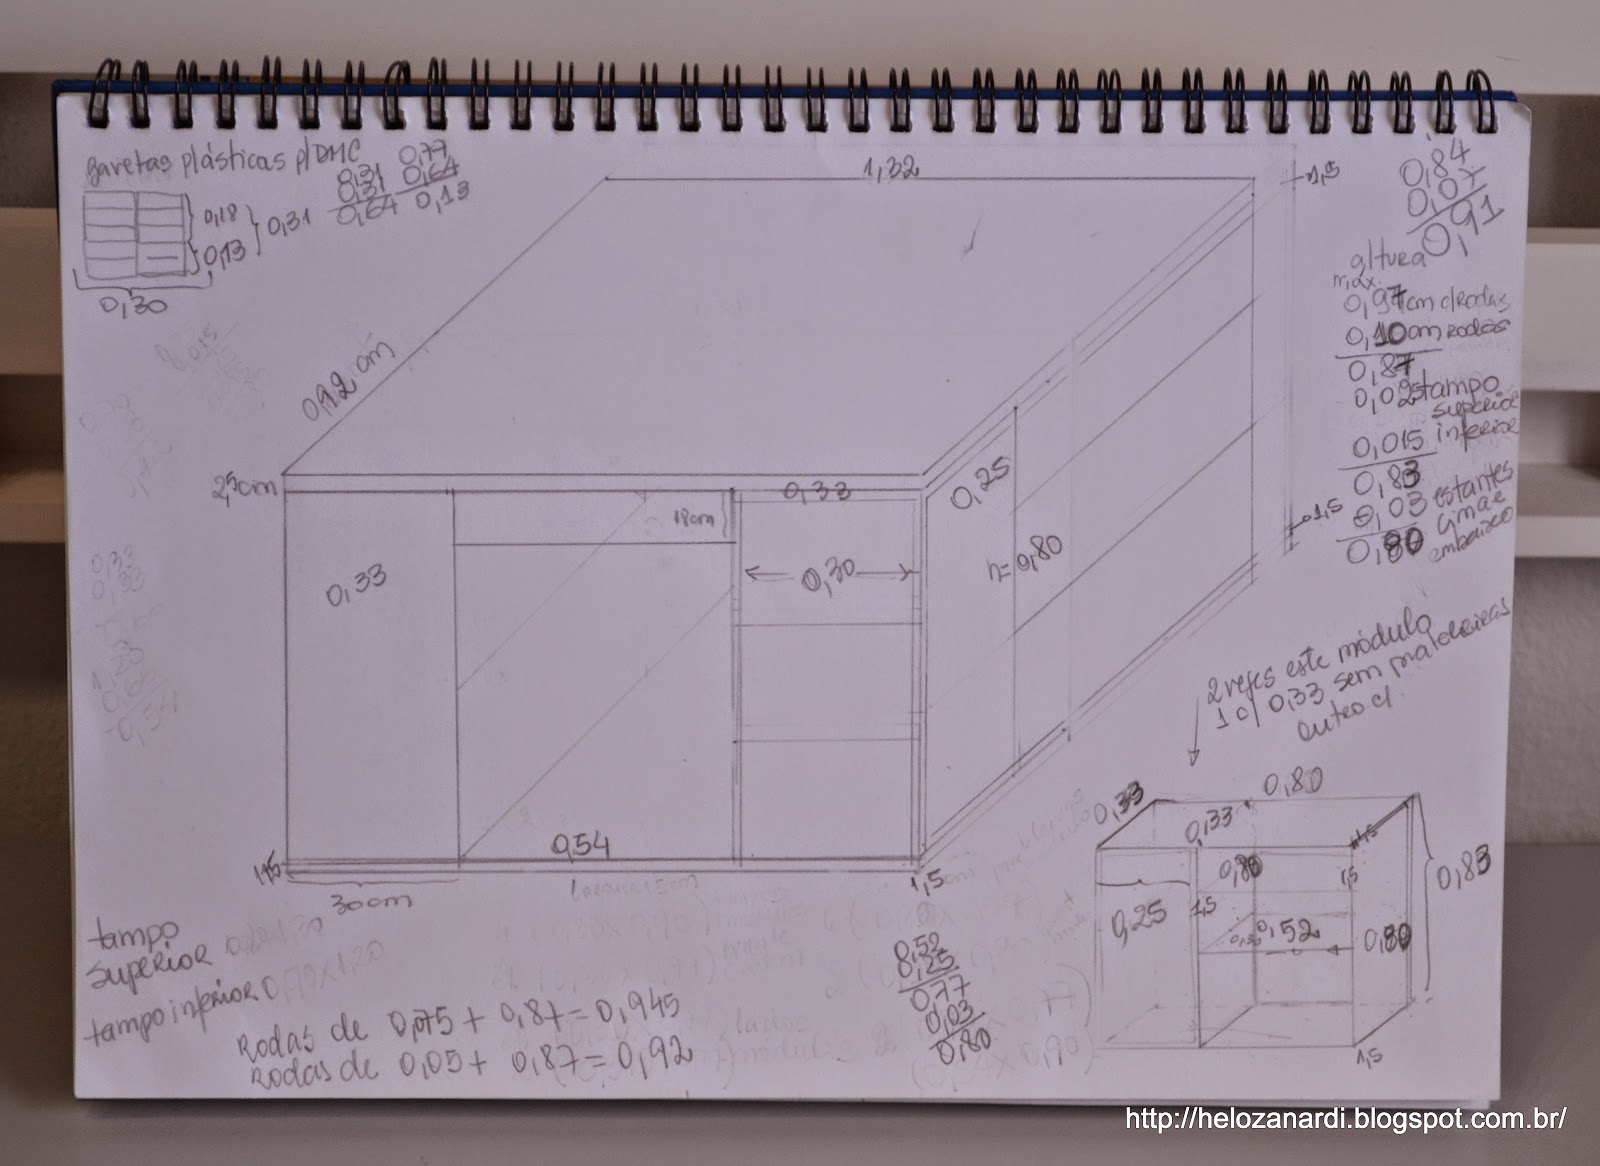 gavetas plásticas p/DMC
0,18
0,13
0,31
0,30
0,31
0,31
0,64
0,77
0,64
0,13
1,32
1,5
0,84
0,07
0,91
altura
máx.
0,97cm c/Rodas
0,10cm rodas
0,87
0,025tampo
superior
0,015 inferior
0,83
0,03 estantes
cima e
embaixo
0,80
0,92 cm
2,5cm
0,33
18cm
0,33
0,30
0,25
h=0,80
1,5
0,54
1,5
30cm
1,5
2 vezes este módulo
1 c/ 0,33 sem prateleiras
outro c/
0,33
0,80
0,33
1,5
0,80
1,5
0,83
0,25
1,5
0,30
0,52
0,80
1,5
tampo
superior
tampo inferior 0,70x1,20
Rodas de 0,075 + 0,87 = 0,945
Rodas de 0,05 + 0,87 = 0,92
0,52
0,25
0,77
0,03
0,80
http://helozanardi.blogspot.com.br/